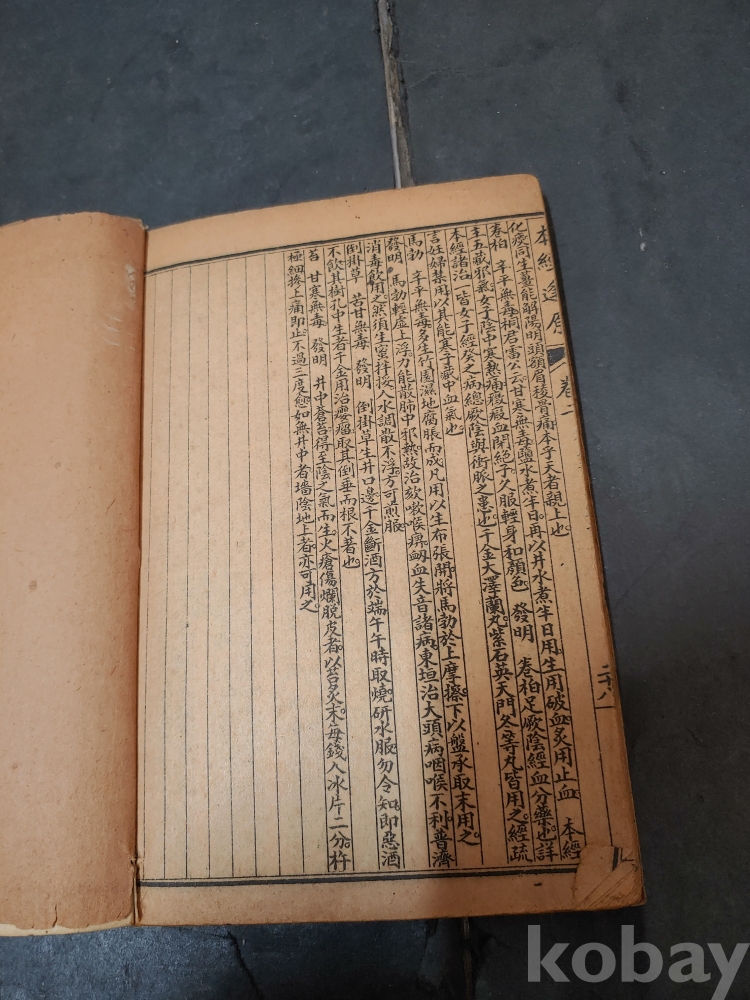 本經逢原 卷二 二十八
化痰同生薑能解陽明頭額眉稜骨痛本乎天者親上也
卷柏 辛平無毒桐君雷公云甘寒無毒鹽水煮半日再以井水煮半日用生用破血炙用止血 本經
主五藏邪氣女子陰中寒熱痛癥瘕血閉絕子久服輕身和顏色 發明 卷柏足厥陰經血分藥也詳
本經諸治一皆女子經癸之病總厥陰與衝脈之患也千金大澤蘭丸紫石英天門冬等丸皆用之經疏
言妊婦禁用以其能寒子藏中血氣也
馬勃 辛平無毒多生竹園濕地腐脹而成凡用以生布張開將馬勃於上摩擦下以盤承取末用之
發明 馬勃輕虛上浮力能散肺中邪熱故治欬嗽喉痹衄血失音諸病東垣治大頭病咽喉不利普濟
消毒飲用之然須生蜜拌挼入水調散不浮方可煎服
倒掛草 苦甘無毒 發明 倒掛草生井口邊千金斷酒方於端午午時取燒研水服勿令知即惡酒
不飲其樹孔中生者千金用治癭瘤取其倒垂而根不著也
苔 甘寒無毒 發明 井中蒼苔得至陰之氣而生火瘡傷爛脫皮者以苔炙末每錢入冰片二分杵
極細摻上痛即止不過三度愈如無井中者墻陰地上者亦可用之
kobay